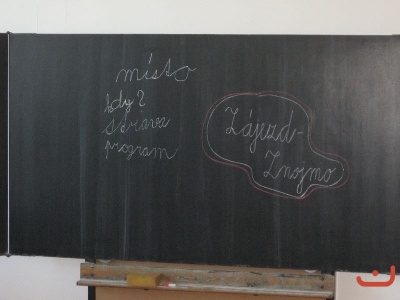 místo
kdy?
strava
program
Zájezd-
Znojmo